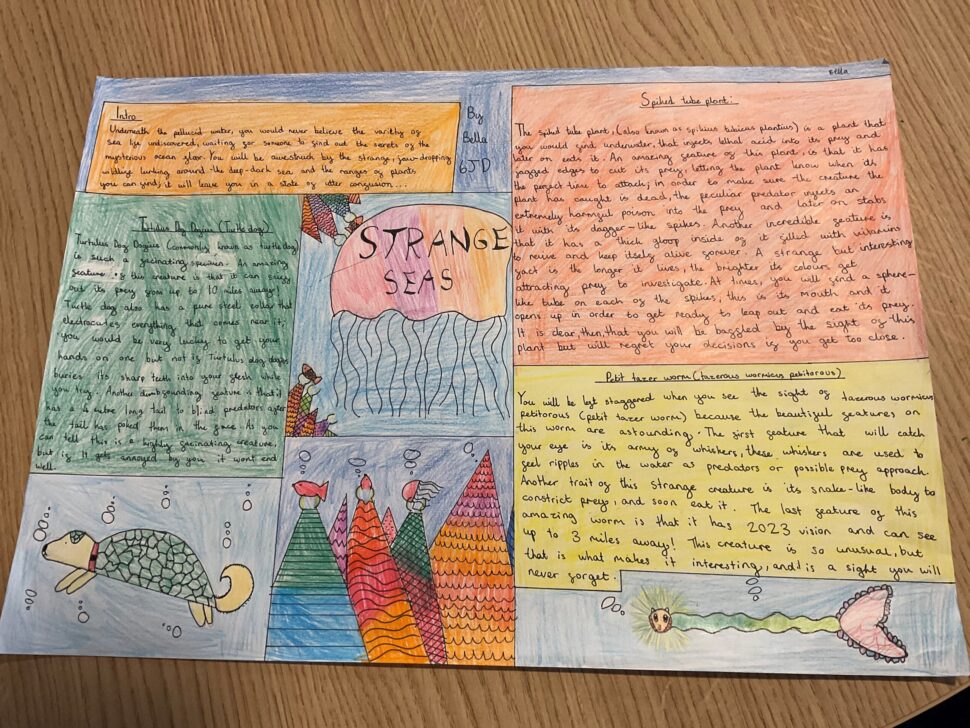 Bella
Intro
Underneath the pellucid water, you would never believe the variety of
sea life undiscovered, waiting for someone to find out the secrets of the
mysterious ocean floor. You will be awestruck by the strange, jaw-dropping
wildling lurking around the deep-dark sea and the ranges of plants
you can find; it will leave you in a state of utter confusion...
By
Bella
6JD
STRANGE
SEAS
Turtulus Dog Dogius (Turtle dog)
Turtulus Dog Dogius (commonly known as turtle dog)
is such a facinating specimen. An amazing
feature of this creature is that it can sniff
out its prey from up to 10 miles away!
Turtle dog also has a pure steel collar that
electrocutes everything that comes near it;
you would be very lucky to get your
hands on one but not if Turtulus dog dogius
buries its sharp teeth into your flesh while
you try. Another dumbfounding feature is that it
has a metre long tail to blind predators after
the tail has poked them in the face. As you
can tell this is a highly facinating creature,
but if it gets annoyed by you it wont end
well.
Spiked tube plant:
The spiked tube plant, (also known as spikius tibicus plantius) is a plant that
you would find underwater, that injects lethal acid into its prey and
later on eats it. An amazing feature of this plant, is that it has
jagged edges to cut its prey, letting the plant know when it's
the perfect time to attack; in order to make sure the creature the
plant has caught is dead, the peculiar predator injects an
extremely harmful poison into the prey and later on stabs
it with its dagger-like spikes. Another incredible feature is
that it has a thick gloop inside of it filled with vitamins
to revive and keep itself alive forever. A strange but interesting
fact is the longer it lives, the brighter its colours get
attracting prey to investigate. At times, you will find a sphere-
like tube on each of the spikes, this is its mouth and it
opens up in order to get ready to leap out and eat its prey.
It is clear, then, that you will be baffled by the sight of this
plant but will regret your decisions if you get too close.
Petit tazer worm (tazerous wormicus petitorous)
You will be left staggered when you see the sight of tazerous wormicus
petitorous (petit tazer worm) because the beautiful features on
this worm are astounding. The first feature that will catch
your eye is its army of whiskers, these whiskers are used to
feel ripples in the water as predators or possible prey approach.
Another trait of this strange creature is its snake-like body to
constrict preys, and soon eat it. The last feature of this
amazing worm is that it has 2023 vision and can see
up to 3 miles away! This creature is so unusual, but
that is what makes it interesting, and is a sight you will
never forget.